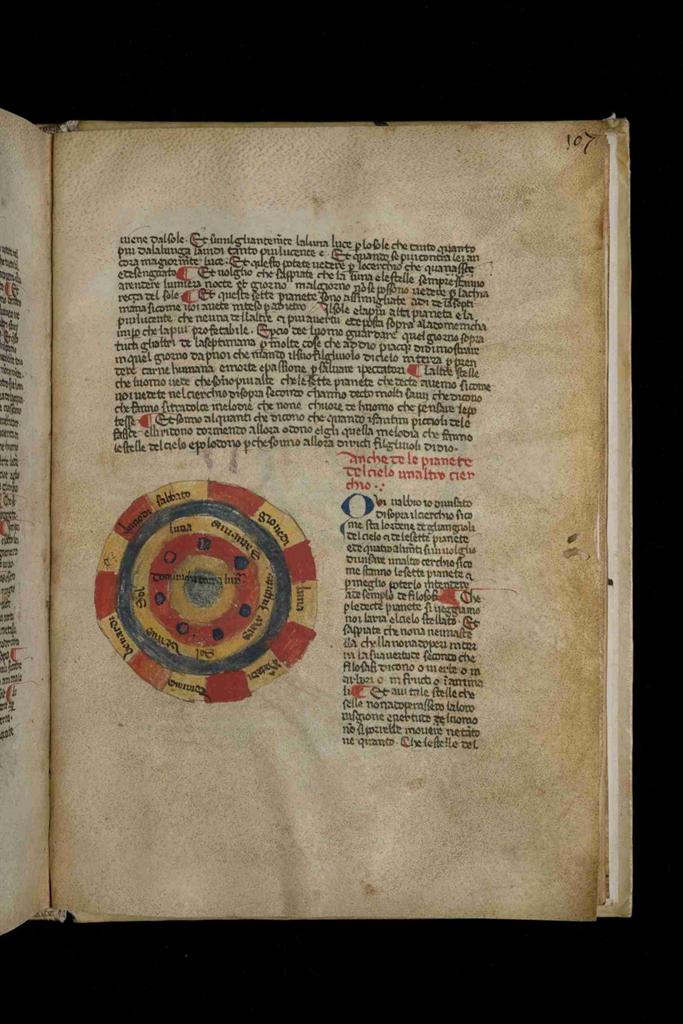 107
uiene dal sole. Et similgliantem̃te la luna luce p lo sole che tanto quanto
piu da lalunga laudi tanto piu lucente e. Et quando se piu contia lei an
cora magiorm̃te luce. Et questo potete uedere p lo cerchio che qua
e desengnato Et uolglio che sappiate che la luna e le stelle sempre stanno
a rendere lumiera nocte et giorno mal giorno nõ se possono uedere p la chia
reça del sole Et queste sette pianete sono assimigliate a di de la septi
mana sicome uoi auete inteso p adietro. Il sole e la piu alta pianeta e la
piu lucente che neuna de li altre et piu auertu ed e posta sopra
impo che la piu profetabile. Et pcio dee luomo guardare quel giorno sopra
tucti gli altri de la septimana p molte cose che ad dio piacq; didimostrare
in quel giorno da pñoi che mando il suo filgliuolo di cielo in terra p pren
dere carne humana e morte e passione p saluare i peccatori La altre stelle
che luomo uede che sono piu alte che le sette pianete che decte auemo sicome
uoi uedete nel cerchio di sopra secondo channo decto molti saui che dicono
che fanno si tra dolce melodie che none chuore de huomo che pensare lepo
tesse Et sono alquanti che dicono che quando i fantini piccioli dele
fasce elli ridono dormento allora odono elgli quella melodia che fanno
le stelle del cielo epo lodono pche sonno allora diricti filgliuoli di dio.
anche de le pianete
del cielo un altro cier
chio
Qui nalbro io diuisato
di sopra il cierchio sico
me sta lordene de gli angioli
del cielo et de le sette pianete
ede quatro alimti si ui uolglio
diuisare unaltro cerchio sico
me stanno le sette pianete et
p meglio poterlo intendere
a de semplo de filosofi Che
ple decte pianete si ueggiamo
noi laria el cielo stellato. Et
sappiate che nona neuna ste
lla chella non adoperi in ter
ra la sua uertude secondo che
filosafi dicono o in erbe o in
arbori o in fructi o in anima
li Et aui tale stelle che
selle non adopenssero la loro
uisgione e uertude ze luomo
nõ si porrebbe mouere ne tãto
ne quanto. Che le stelle del
sabbato
giouedi
luna
luna
Saturnus
Iupiter
mars
Sol
Venus
Sol